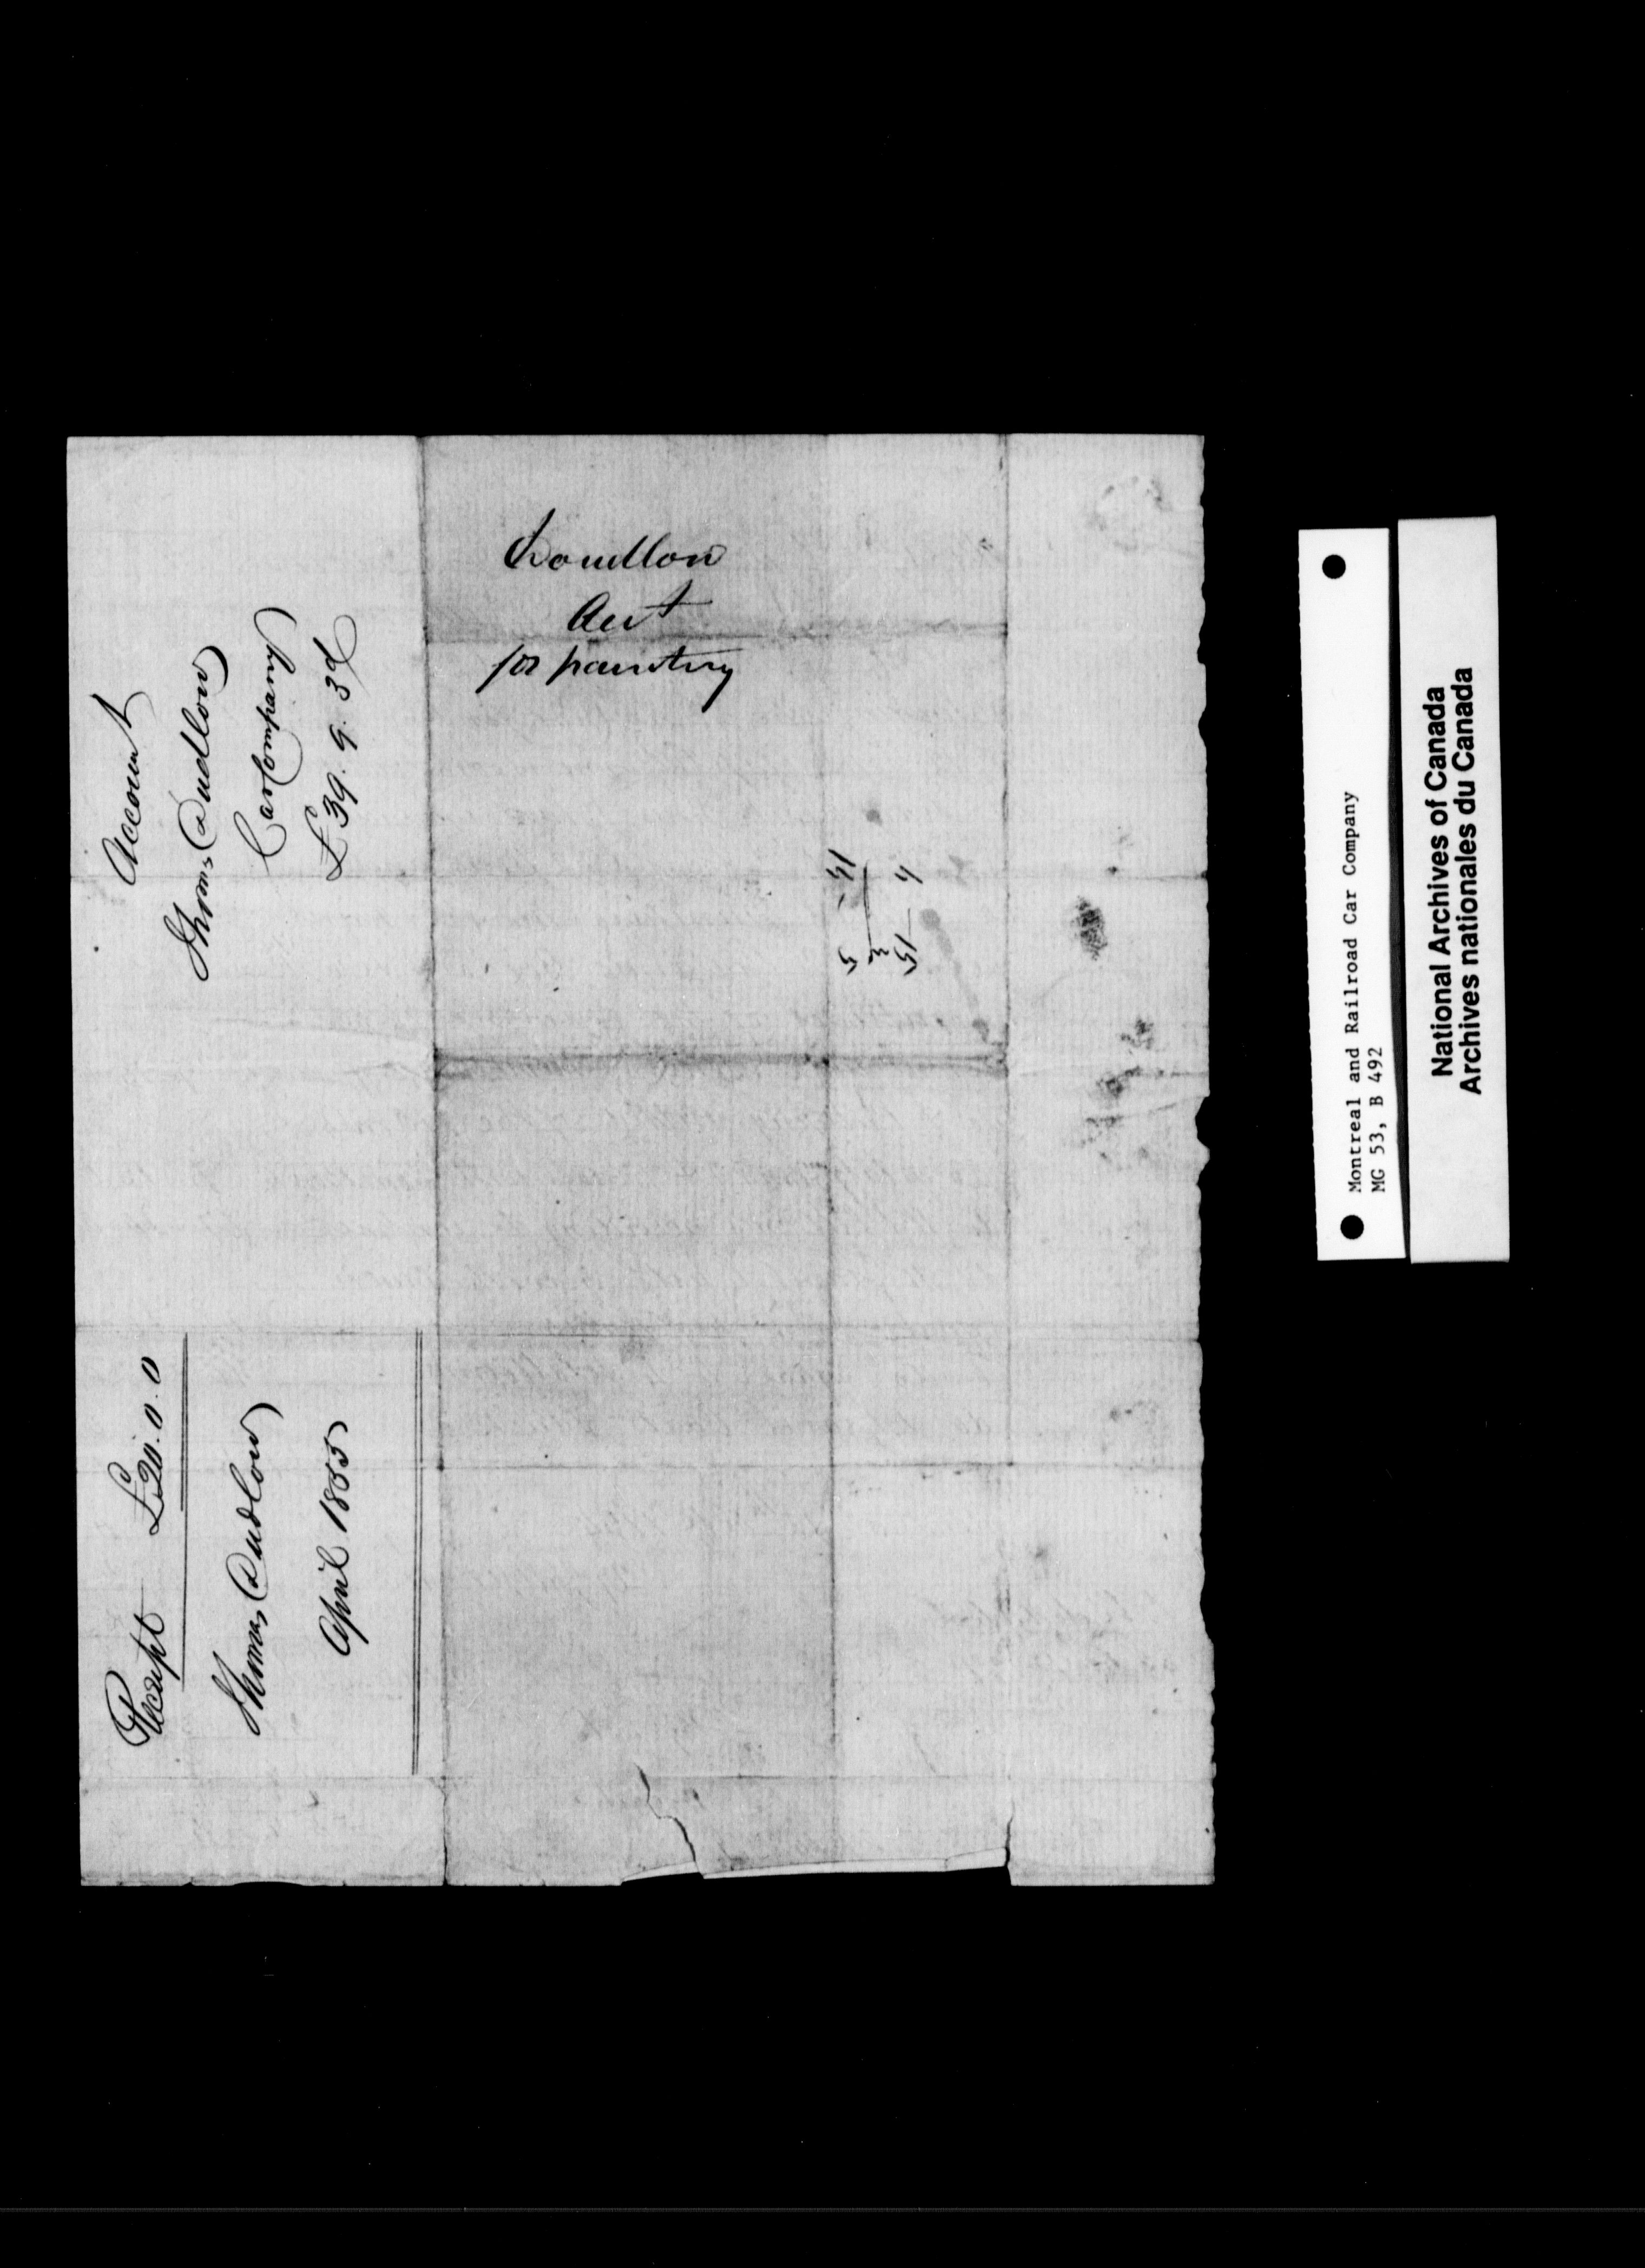 Account
Thom,, Cudlow
Car Company
£39. 9. 3d
Receipt £20. 0. 0
Thomas Cudlow
April 1855
Act
for painting
Montreal and Railroad Car Company
MG 53, B 492
National Archives of Canada
Archives nationales du Canada